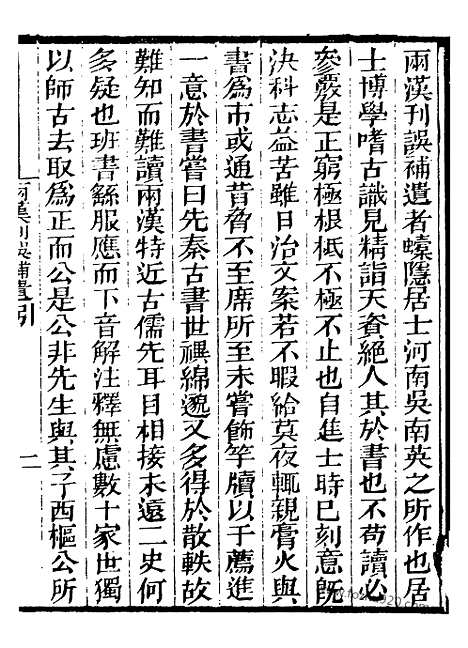 兩漢刊誤補遺者螓隱居士河南吳南英之所作也居
士博學嗜古識見精詣天資絕人其於書也不苟讀必
參覈是正窮極根柢不極不止也自進士時已刻意旣
決科志益苦雖日治文案若不暇給莫夜輒親膏火與
書爲市或通昔脅不至席所至未嘗飾竿牘以干薦進
一意於書嘗曰先秦古書世禩綿邈又多得於散軼故
難知而難讀兩漢特近古儒先耳目相接未遠二史何
多疑也班書繇服應而下音解注釋無慮數十家世獨
以師古去取爲正而公是公非先生與其子西樞公所
兩漢刊誤補遺引
二